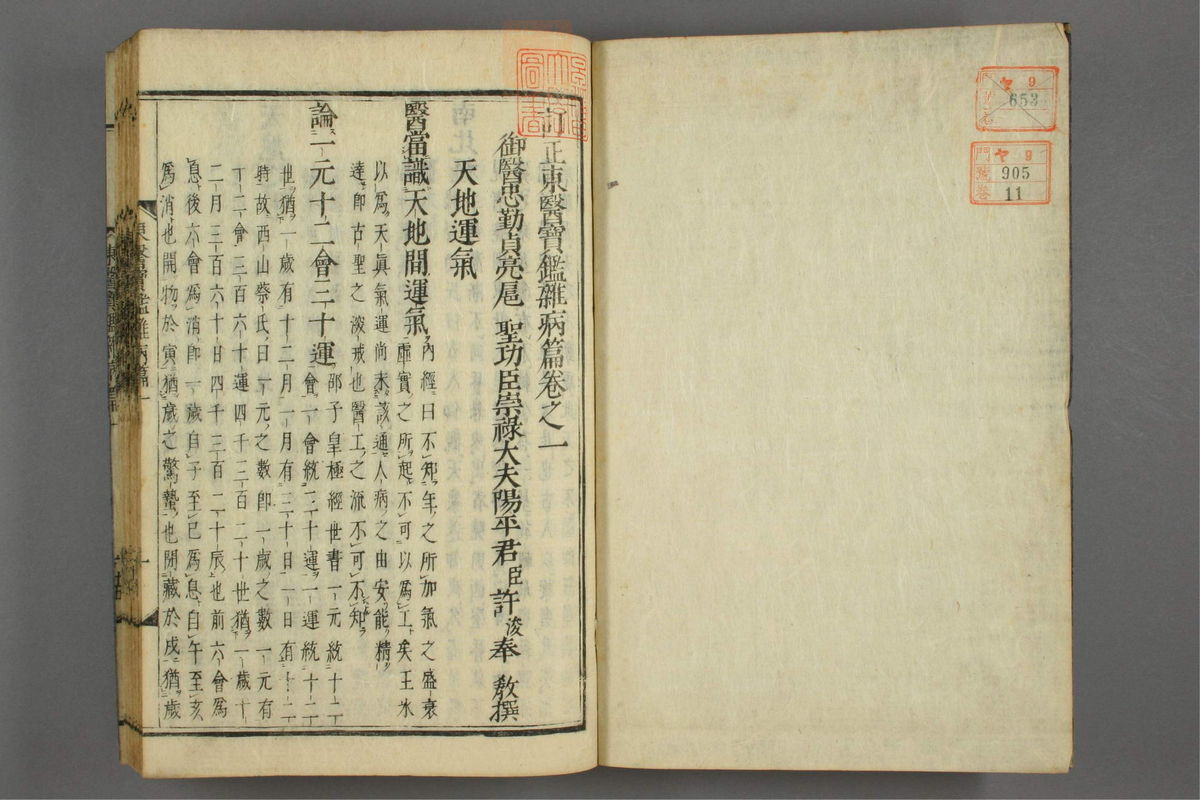 ヤ9
653
門 ヤ9
號 905
卷 11
訂正東醫寶鑑雜病篇卷之一
御醫忠勤貞亮扈 聖功臣崇祿大夫陽平君臣許浚奉 教撰
天地運氣
醫當識天地間運氣 內經曰不知年之所加氣之盛衰
虛實之所起不可以爲工矣王氷
以爲天眞氣運尚未該通人病之由安能精
達卽古聖之深戒也醫工之流不可不知
論一元十二會三十運 邵子皇極經世書一元統十二
會一會統三十運一運統十二
世猶一歲有十二月一月有三十日一日有十二
時故西山蔡氏曰一元之數卽一歲之數一元有
十二會三百六十運四千三百二十世猶一歲十
二月三百六十日四千三百二十辰也前六會爲
息後六會爲消卽一歲自子至巳爲息自午至亥
爲消也開物於寅猶歲之驚蟄也閉藏於戌猶歲
東醫寶鑑雜病篇一